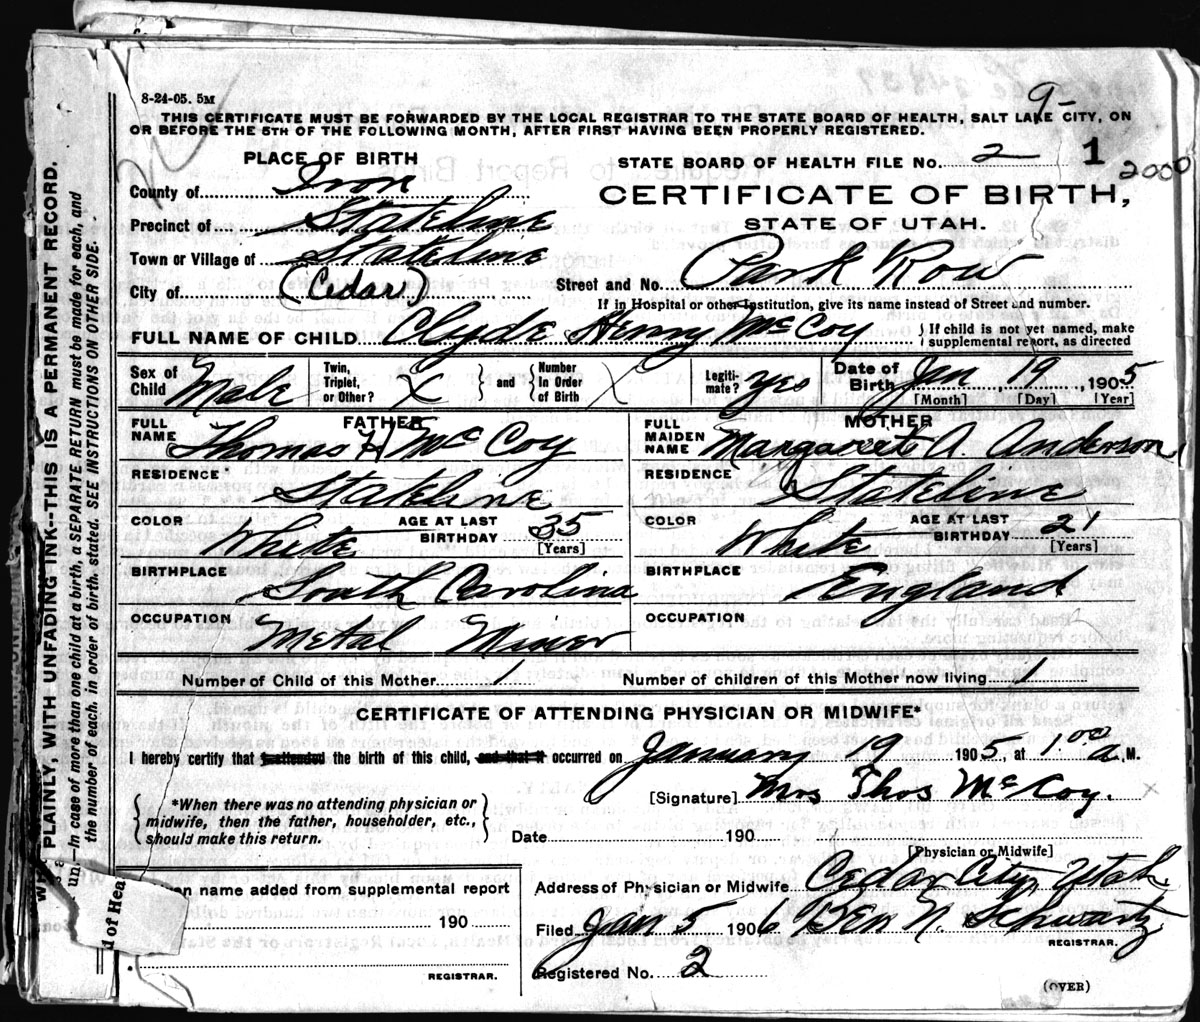 8-24-05. 5M
9-
THIS CERTIFICATE MUST BE FORWARDED BY THE LOCAL REGISTRAR TO THE STATE BOARD OF HEALTH, SALT LAKE CITY, ON
OR BEFORE THE 5TH OF THE FOLLOWING MONTH, AFTER FIRST HAVING BEEN PROPERLY REGISTERED.
PLACE OF BIRTH
STATE BOARD OF HEALTH FILE No. 2 1 2000
County of Iron
CERTIFICATE OF BIRTH,
Precinct of Stateline
STATE OF UTAH.
Town or Village of Stateline
City of (Cedar)
Street and No. Park Row
If in Hospital or other Institution, give its name instead of Street and number.
FULL NAME OF CHILD Clyde Henry McCoy
} If child is not yet named, make
supplemental report, as directed
Sex of Child Male
Twin, Triplet, or Other?
} and {
Number In Order of Birth
Legitimate? yes
Date of Birth Jan 19, 1905
[Month] [Day] [Year]
FATHER
FULL NAME Thomas H McCoy
MOTHER
FULL MAIDEN NAME Margarete A. Anderson
RESIDENCE Stateline
RESIDENCE Stateline
COLOR White
AGE AT LAST BIRTHDAY 35
[Years]
COLOR White
AGE AT LAST BIRTHDAY 21
[Years]
BIRTHPLACE South Carolina
BIRTHPLACE England
OCCUPATION Metal Miner
OCCUPATION
Number of Child of this Mother 1
Number of children of this Mother now living 1
CERTIFICATE OF ATTENDING PHYSICIAN OR MIDWIFE*
I hereby certify that I attended the birth of this child, and that it occurred on January 19 1905, at 1.00 a. M.
{ *When there was no attending physician or
midwife, then the father, householder, etc.,
should make this return. }
[Signature] Mrs Thos McCoy.
Date 190
[Physician or Midwife]
en name added from supplemental report
190
REGISTRAR.
Address of Physician or Midwife Cedar City, Utah.
Filed Jan 5 1906 Ben N. Schwartz
REGISTRAR.
Registered No. 2
(OVER)
PLAINLY, WITH UNFADING INK--THIS IS A PERMANENT RECORD.
—In case of more than one child at a birth, a SEPARATE RETURN must be made for each, and
the number of each, in order of birth, stated. SEE INSTRUCTIONS ON OTHER SIDE.
d of Hea